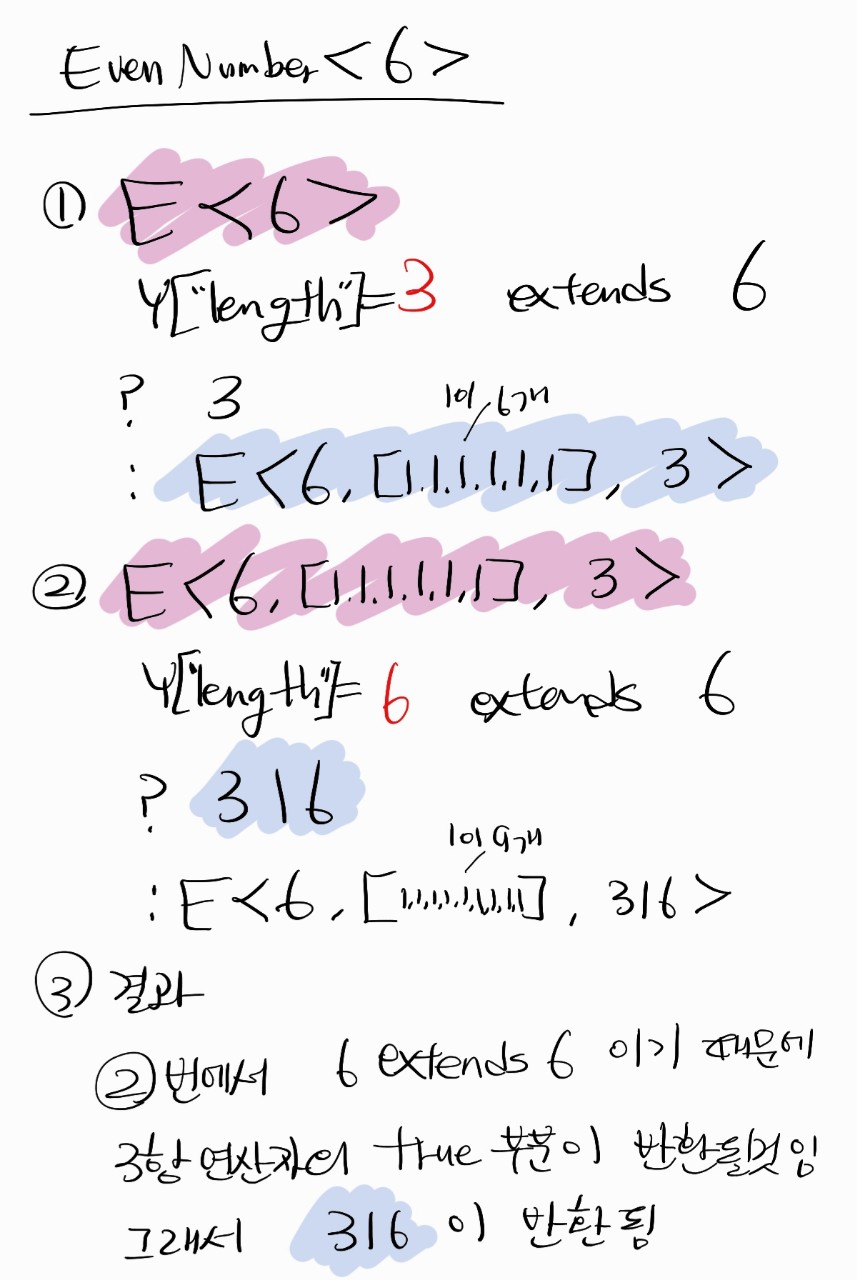 Even Number<6>
① E<6>
Y["length"]=3 extends 6
? 3
1이 6개
: E<6, [1,1,1,1,1,1], 3>
② E<6, [1,1,1,1,1,1], 3>
Y["length"]= 6 extends 6
? 316
1이 9개
: E<6, [1,1,1,1,1,1,1,1,1], 316>
③ 결과
②번에서 6 extends 6 이기 때문에
3항 연산자의 true 부분이 반환될것임
그래서 316 이 반환됨